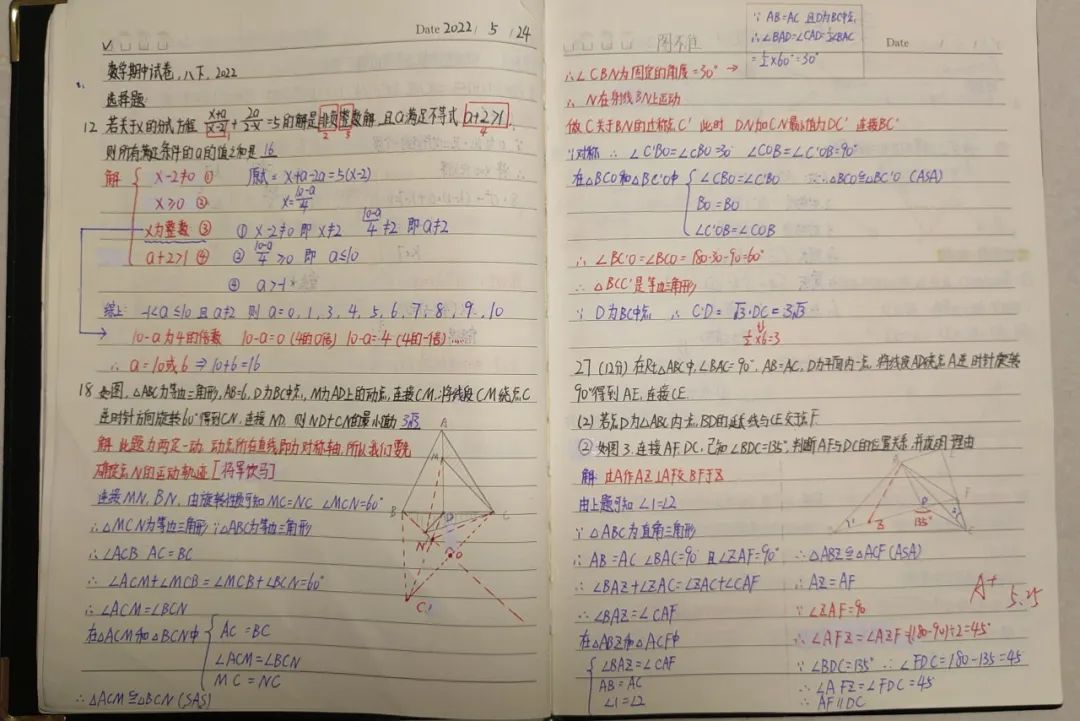 Date 2022 / 5 / 24
数学期中试卷,八下,2022
选择题
12 若关于x的分式方程 (x+a)/(x-2) + 2a/(2-x) =5的解是非负整数解,且a满足不等式 a+2>1,
1 2 3 4
则所有满足条件的a的值之和是 16
解 { x-2≠0 ① 原式= x+a-2a=5(x-2)
x≥0 ② x=(10-a)/4
x为整数 ③ ① x-2≠0 即 x≠2 (10-a)/4≠2 即 a≠2
a+2>1 ④ ② (10-a)/4≥0 即 a≤10
④ a>-1
综上: -1<a≤10 且 a≠2 则 a=0,1,3,4,5,6,7,8,9,10
10-a为4的倍数 10-a=0 (4的0倍) 10-a=4 (4的一倍)
∴ a=10或6 ⇒ 10+6=16
18 如图,△ABC为等边三角形,AB=6,D为BC中点,M为AD上的动点,连接CM,将线段CM绕点C
逆时针方向旋转60°得到CN,连接ND,则ND+CN的最小值为 3√3
解 此题为两定一动 动点所在直线即为对称轴,所以我们要先
确定点N的运动轨迹[将军饮马]
连接MN、BN,由旋转性质可知 MC=NC ∠MCN=60°
∴△MCN为等边三角形∵△ABC为等边三角形
∴∠ACB AC=BC
∴ ∠ACM+∠MCB=∠MCB+∠BCN=60°
∴∠ACM=∠BCN
在△ACM和△BCN中 { AC=BC
∠ACM=∠BCN
MC=NC
∴△ACM≌△BCN (SAS)
A
M
B
D
C
N
O
C'
∵ AB=AC 且D为BC中点
∴∠BAD=∠CAD=½∠BAC
=½×60°=30°
图不准
Date
∴∠CBN为固定的角度=30° →
∴ N在射线BN上运动
做C关于BN的对称点C' 此时 DN加CN最小值为DC' 连接BC'
∵对称 ∴ ∠C'BO=∠CBO=30° ∠COB=∠C'OB=90°
在△BCO和△BC'O中 { ∠CBO=∠C'BO ∴△BCO≌△BC'O (ASA)
BO=BO
∠C'OB=∠COB
∴ ∠BC'O=∠BCO=180-30-90=60°
∴ △BCC'是等边三角形
∵ D为BC中点 ∴ C'D=√3·DC=3√3
½×6=3
27 (12分) 在Rt△ABC中,∠BAC=90°,AB=AC,D为平面内一点,将线段AD绕点A逆时针旋转
90°得到AE,连接CE.
(2) 若点D为△ABC内一点,BD的延长线与CE交于点F.
② 如图3,连接AF、DC,已知 ∠BDC=135°,判断AF与DC的位置关系,并说明理由
解 过A作AZ⊥AF交BF于Z
由上题可知 ∠1=∠2
∵ △ABC为直角三角形
∴ AB=AC ∠BAC=90° 且∠ZAF=90°
∴ ∠BAZ+∠ZAC=∠ZAC+∠CAF
∴ ∠BAZ=∠CAF
在△ABZ和△ACF中
{ ∠BAZ=∠CAF
AB=AC
∠1=∠2
D
F
Z
135°
∴△ABZ≌△ACF(ASA)
∴ AZ=AF
∵ ∠ZAF=90
∴ ∠AFZ=∠AZF=(180-90)÷2=45°
∵ ∠BDC=135° ∴∠FDC=180-135=45
∴ ∠AFZ=∠FDC=45
∴ AF∥DC
A+
5.25